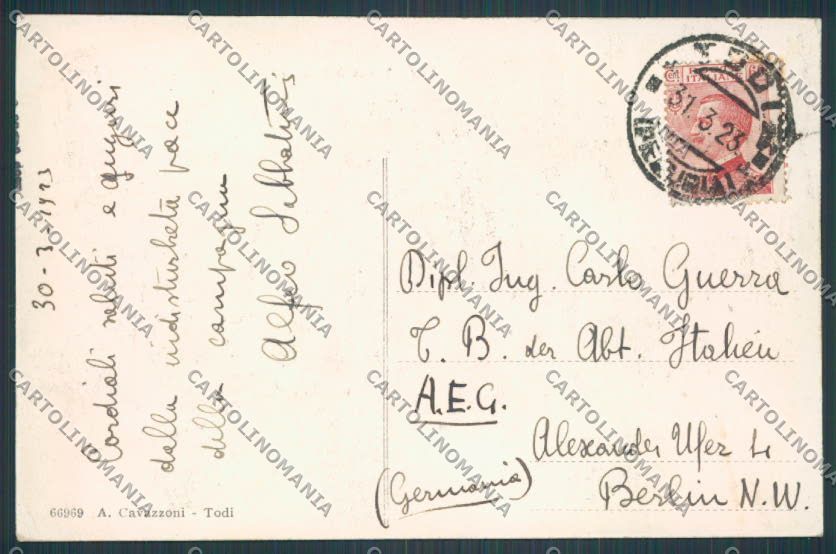 30-3-1923
Cordiali saluti e auguri
dalla indisturbata pace
della campagna
Alfeo
Dipl. Ing. Carlo Guerra
T. B. der Abt. Italien
A.E.G.
Alexander Ufer
Berlin N.W.
(Germania)
TODI
31.3.23
66969 A. Cavazzoni - Todi
CARTOLINOMANIA